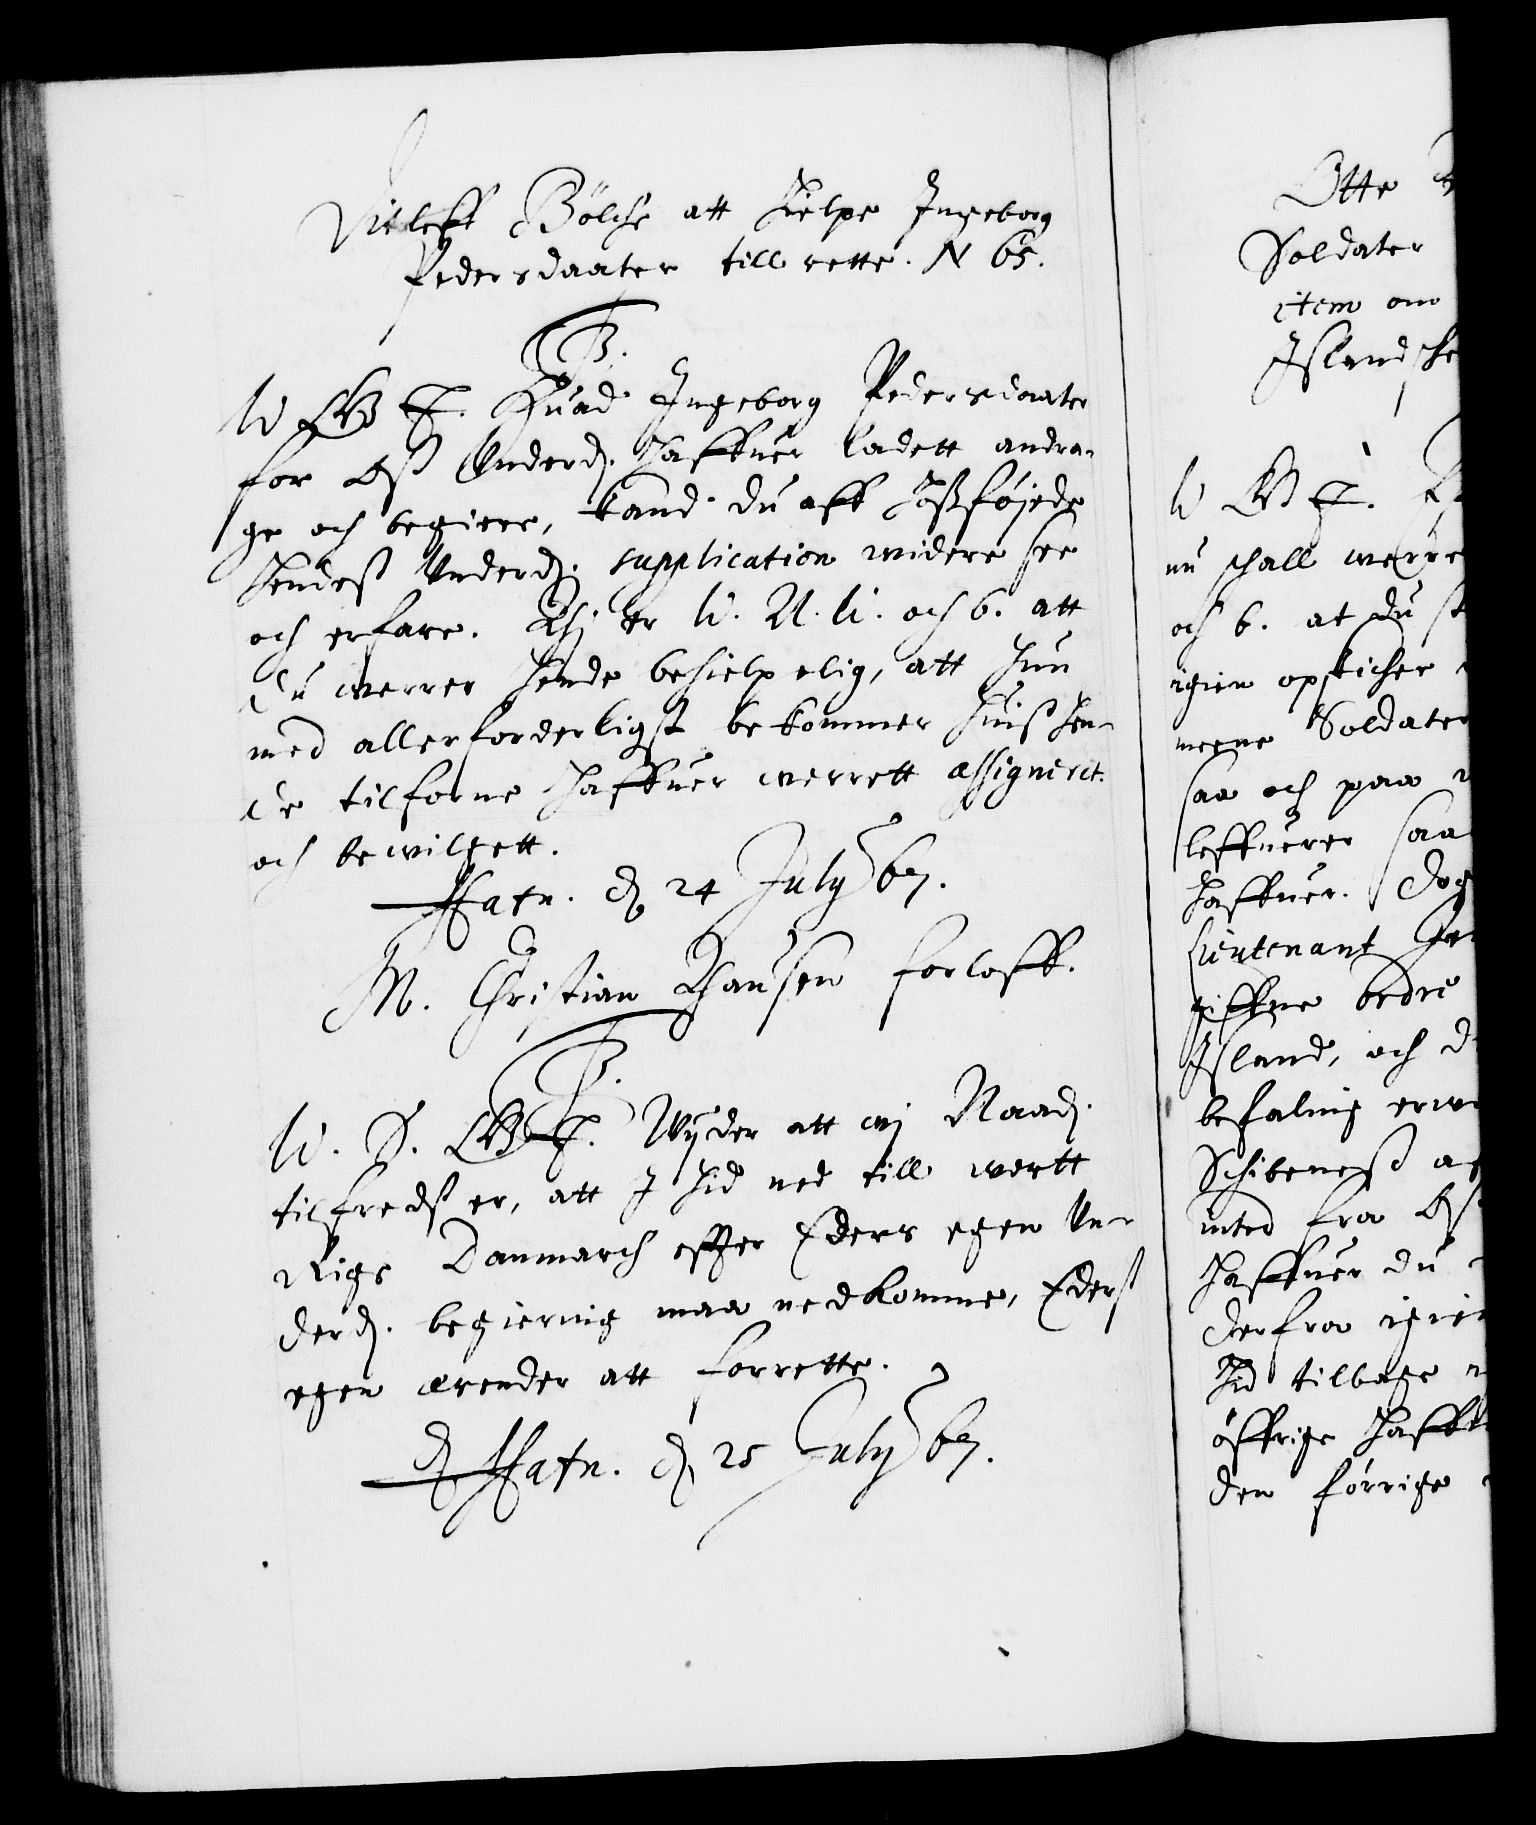 Ditleff Bölche att hielpe Ingeborg
Pedersdaater till rette. N 65.
W G B T. Huad Ingeborg Pedersdaater
for Oß Underd. haffuer ladett andra-
ge och begiere, kand du aff hoßföjede
hendeß Underd. supplication widere see
och erfare. Thj er W. N. W. och b. att
du werrer hende behielpelig, att hun
med allerforderligst bekommer huiß hen-
de tilforne haffuer werrett assignerit
och bewilgett.
Hafn. d. 24 July 67.
M. Christian Hansen forloff.
W. S. G B T. Wijder att wj Naad.
tilfredß er, att I hid ned till wortt
Rige Danmarch effter Eders egen Un-
derd. begiering maa nedkomme, Ederß
egen ærender att forrette.
Hafn. d. 25 July 67.
Otte
Soldater
item om
Islandsche
W G B T.
nu schall werre
och b. at du
igien opsticher
meene Soldater
saa och paa
leffuerer saa
haffuer. Dog
Lieutenant
giffne ordre
Island, och
befaling
Schibeneß
inted fra Oß
haffuer du
derfra igien
hid tilbage
öffrige
den förrige